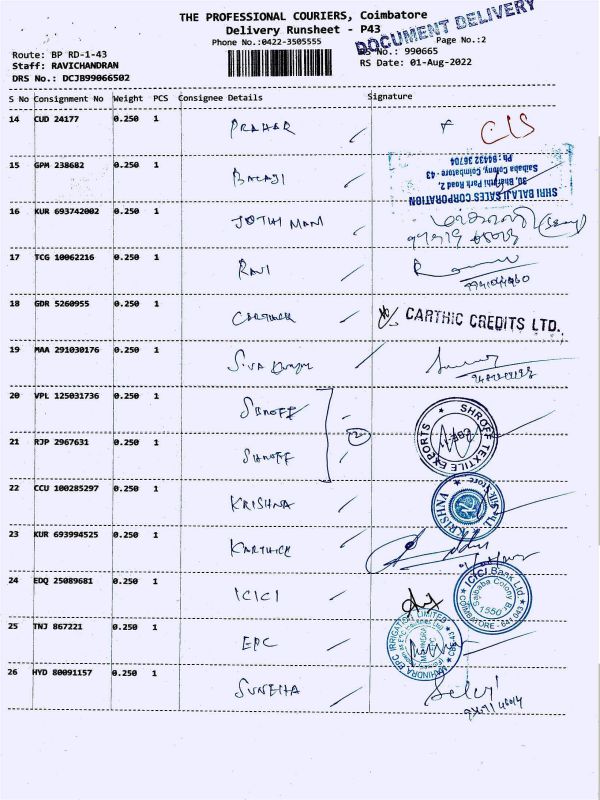 THE PROFESSIONAL COURIERS, Coimbatore
Delivery Runsheet - P43
DOCUMENT DELIVERY
Phone No.:0422-3505555
Page No.:2
Route: BP RD-1-43
RS No.: 990665
Staff: RAVICHANDRAN
RS Date: 01-Aug-2022
DRS No.: DCJB99066502
S No Consignment No Weight PCS Consignee Details Signature
14 CUD 24177 0.250 1 PRAHAR
15 GPM 238682 0.250 1 BALAJI
SHRI BALAJI SALES CORPORATION
30, Bharathi Park Road 2,
Saibaba Colony, Coimbatore - 43
Ph : 94432 36704
16 KUR 693742002 0.250 1 JOTHI MANI
17 TCG 10062216 0.250 1 RAVI
18 GDR 5260955 0.250 1 CARTHICK CARTHIC CREDITS LTD.
19 MAA 291030176 0.250 1 SIVA
20 VPL 125031736 0.250 1 SHROFF
21 RJP 2967631 0.250 1 SHROFF
2
SHROFF TEXTILE EXPORTS
CBE-
22 CCU 100285297 0.250 1 KRISHNA
KRISHNA
23 KUR 693994525 0.250 1 KARTHICK
24 EDQ 25089681 0.250 1 ICICI
ICICI Bank Ltd
Saibaba Colony Br
1550
COIMBATORE - 641 043
25 TNJ 867221 0.250 1 EPC
MAHINDRA EPC IRRIGATION LIMITED
26 HYD 80091157 0.250 1 SUNEHA